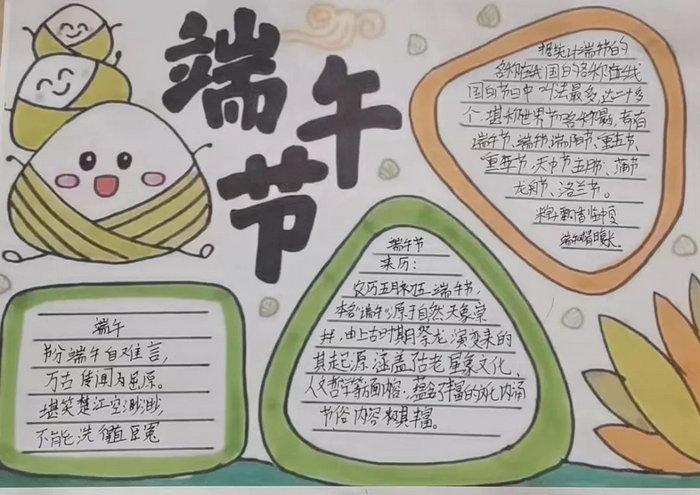 端午节
端午
节分端午自难言,
万古传闻为屈原。
堪笑楚江空渺渺,
不能洗得直臣冤
端午节
来历:
农历五月初五,端午节,
本名“端午”,源于自然天象崇
拜,由上古时期祭龙演变来的
其起源涵盖了古老星象文化、
人文哲学等方面内容,蕴含了丰富的文化内涵
节俗内容极其丰富。
据统计端午节的
名称在我国的各种传统
国的节日中叫法最多,达二十多
个,堪称世界节日名称之最,有
端午节、端阳节、重五节、
重午节、天中节、五月节、蒲节
龙舟节、浴兰节。